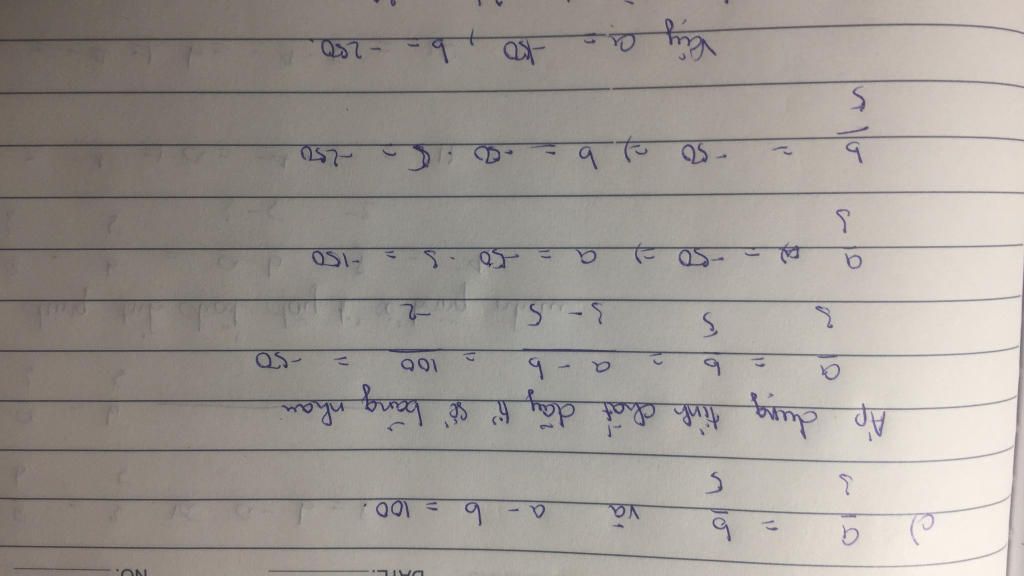 DATE: NO.
c) a/3 = b/5 và a - b = 100.
Áp dụng tính chất dãy tỉ số bằng nhau
a/3 = b/5 = a - b/3 - 5 = 100/-2 = -50
a/3 = -50 => a = -50 . 3 = -150
b/5 = -50 => b = -50 . 5 = -250
Vậy a = -150, b = -250.